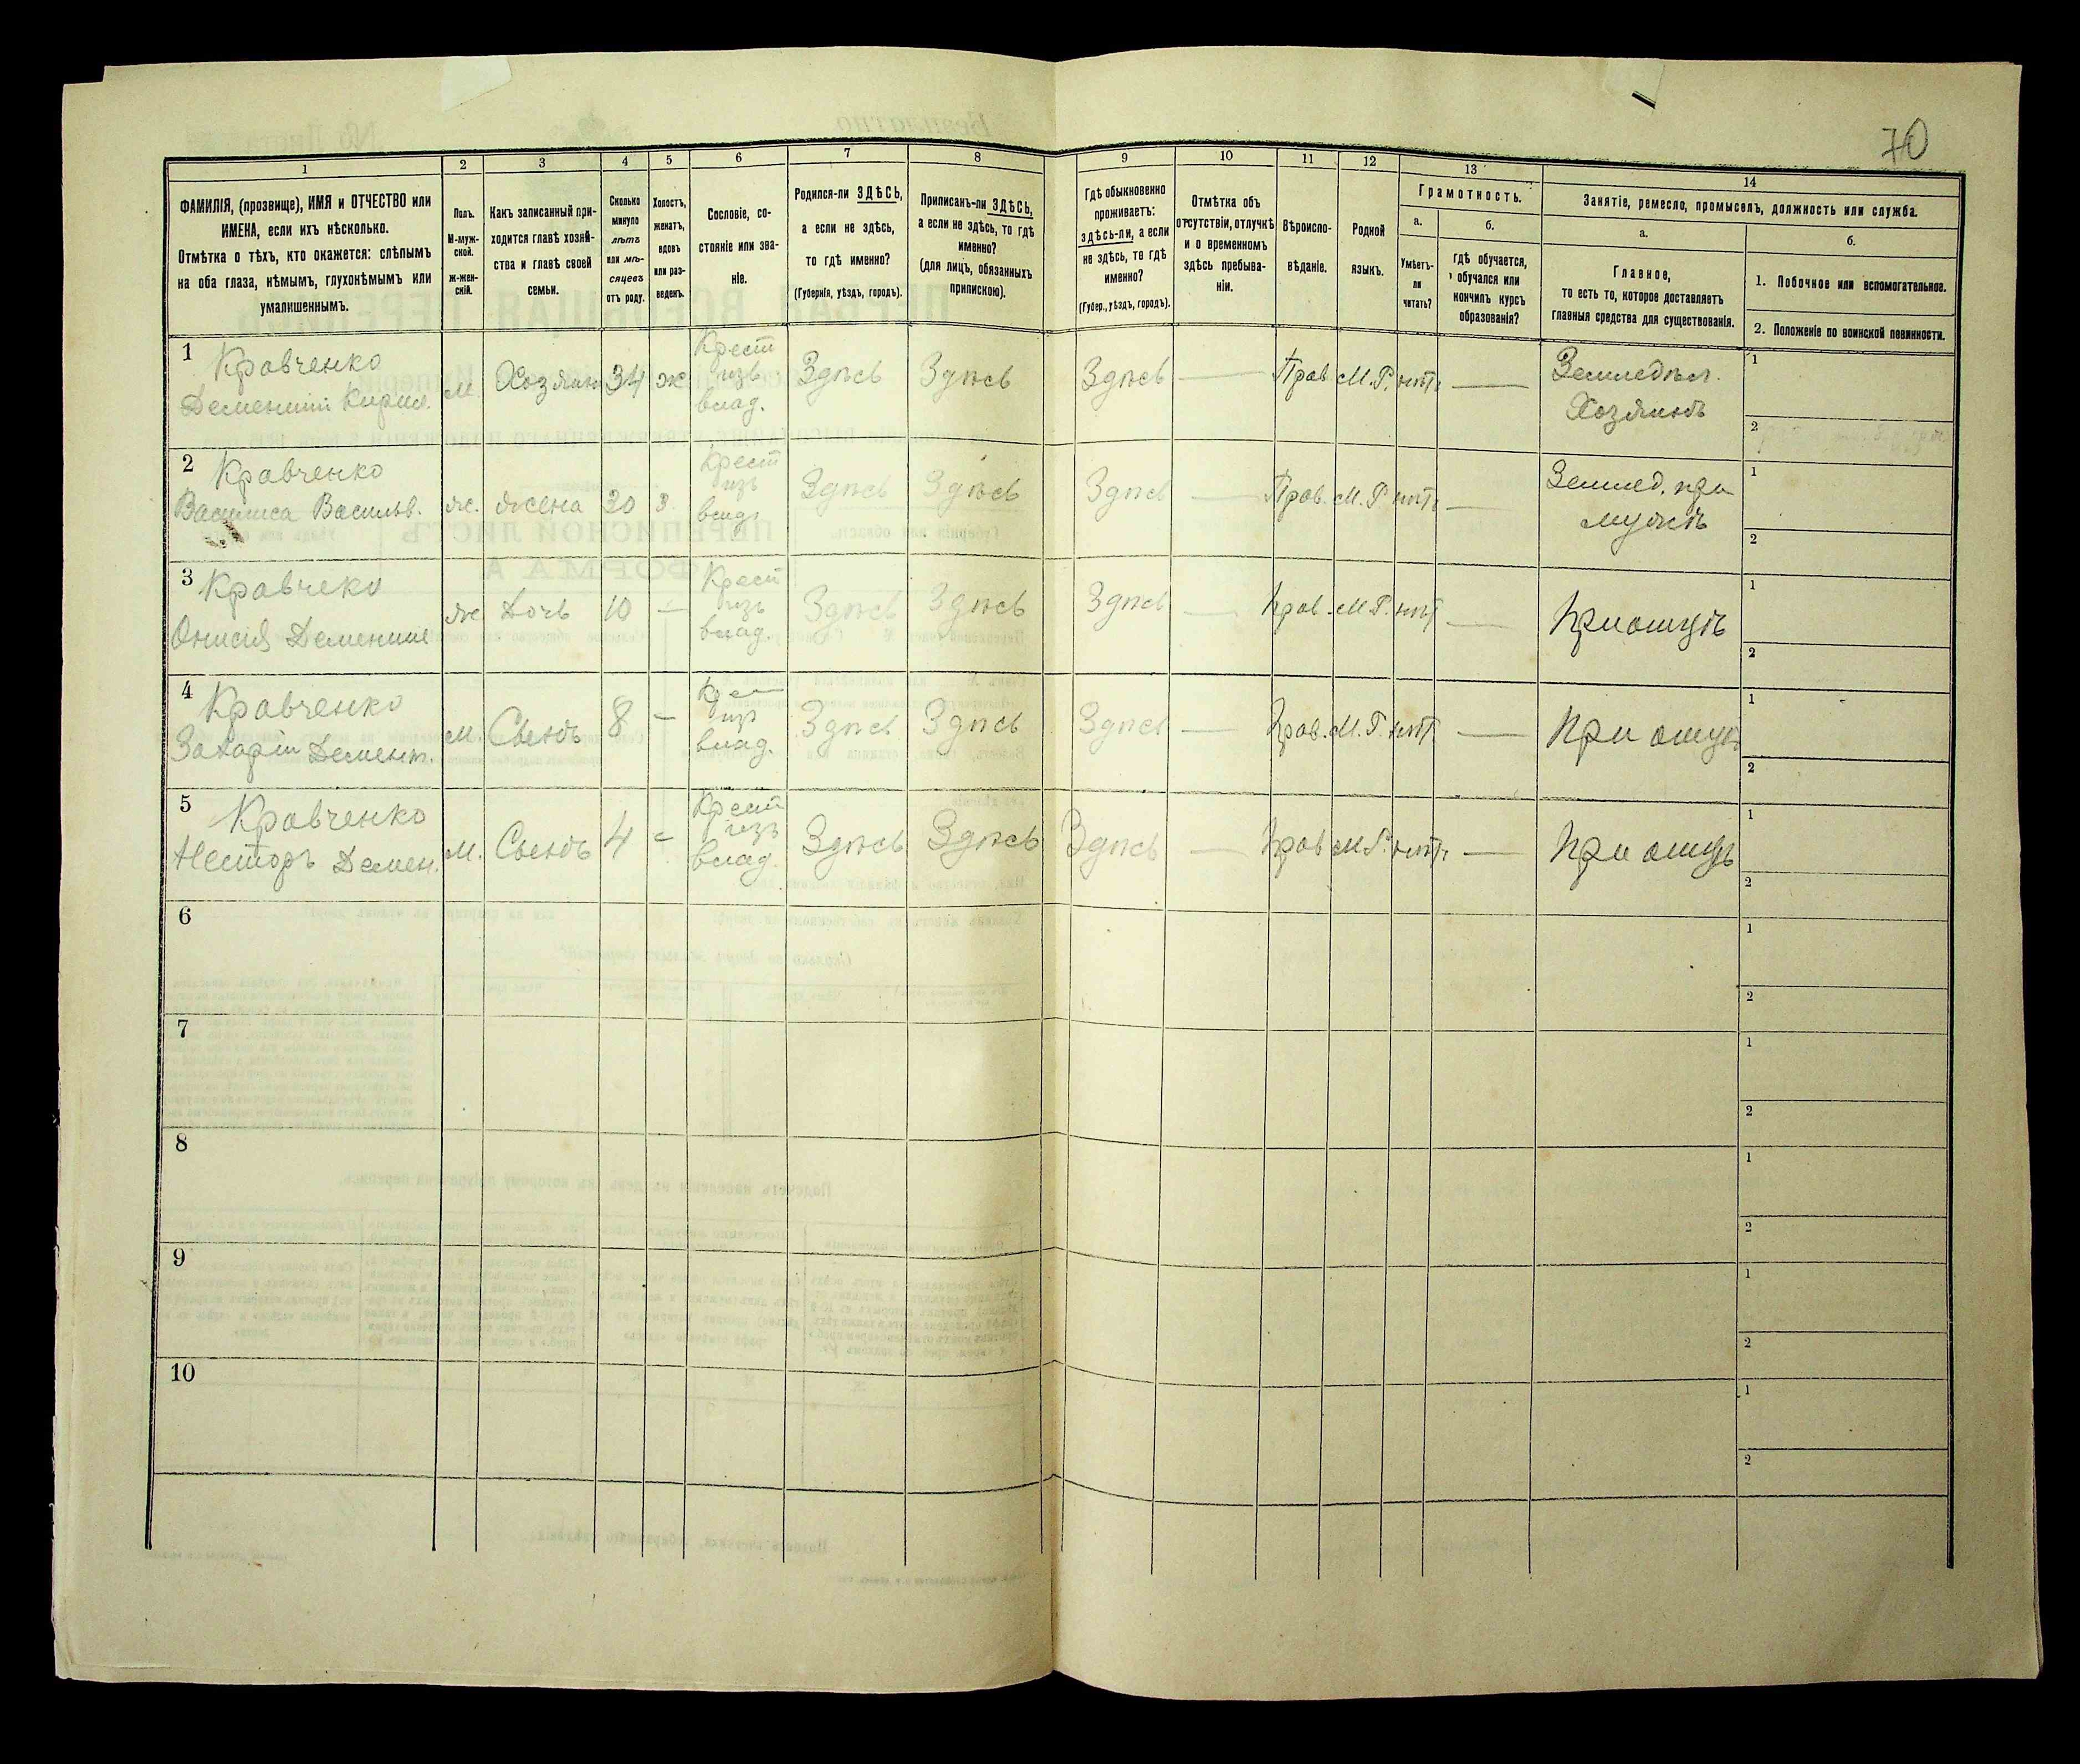 70
1
2
3
4
5
6
7
8
9
10
11
12
13
14
ФАМИЛІЯ, (прозвище), ИМЯ и ОТЧЕСТВО или
ИМЕНА, если ихъ нѣсколько.
Отмѣтка о тѣхъ, кто окажется: слѣпымъ
на оба глаза, нѣмымъ, глухонѣмымъ или
умалишеннымъ.
Полъ.
М-муж-
ской.
Ж-жен-
скій.
Какъ записанный при-
ходится главѣ хозяй-
ства и главѣ своей
семьи.
Сколько
минуло
лѣтъ
или мѣ-
сяцевъ
отъ роду.
Холостъ,
женатъ,
вдовъ
или раз-
веденъ.
Сословіе, со-
стояніе или зва-
ніе.
Родился-ли ЗДѢСЬ,
а если не здѣсь,
то гдѣ именно?
(Губернія, уѣздъ, городъ).
Приписанъ-ли ЗДѢСЬ,
а если не здѣсь, то гдѣ
именно?
(для лицъ, обязанныхъ
припискою).
Гдѣ обыкновенно
проживаетъ:
здѣсь-ли, а если
не здѣсь, то гдѣ
именно?
(Губер., уѣздъ, городъ).
Отмѣтка объ
отсутствіи, отлучкѣ
и о временномъ
здѣсь пребыва-
ніи.
Вѣроиспо-
вѣданіе.
Родной
языкъ.
Грамотность.
а.
Умѣетъ-
ли
читать?
б.
гдѣ обучается,
обучался или
кончилъ курсъ
образованія?
Занятіе, ремесло, промыселъ, должность или служба.
а.
Главное,
то есть то, которое доставляетъ
главныя средства для существованія.
б.
1. Побочное или вспомогательное.
2. Положеніе по воинской повинности.
1
Кравченко
Дементій Кирил.
М. Хозяинъ 34 ж
Крест
изъ
влад.
Здѣсь Здѣсь Здѣсь — Прав М.Р. нѣтъ —
Земледѣл.
Хозяинъ
1
2
2
Кравченко
Василиса Васильв.
ж. жена 30 з.
Крест
изъ
влад
Здѣсь Здѣсь Здѣсь — Прав. М.Р нѣтъ —
Земled. при
мужѣ
1
2
3
Кравчеко
Онисія Дементие
ж Дочь 10 —
Крест
изъ
влад.
Здѣсь Здѣсь Здѣсь — Прав. М.Р. нѣт —
При отцѣ
1
2
4
Кравченко
Захарій Демент.
м Сынъ 8 —
Крест
изъ
влад.
Здѣсь Здѣсь Здѣсь — Прав. М.Р. нѣт —
При отцѣ
1
2
5
Кравченко
Несторъ Демен.
М. Сынъ 4 -
Крест
изъ
влад.
Здѣсь Здѣсь Здѣсь — Прав М.Р. нѣтъ —
При отцѣ
1
2
6
1
2
7
1
2
8
1
2
9
1
2
10
1
2